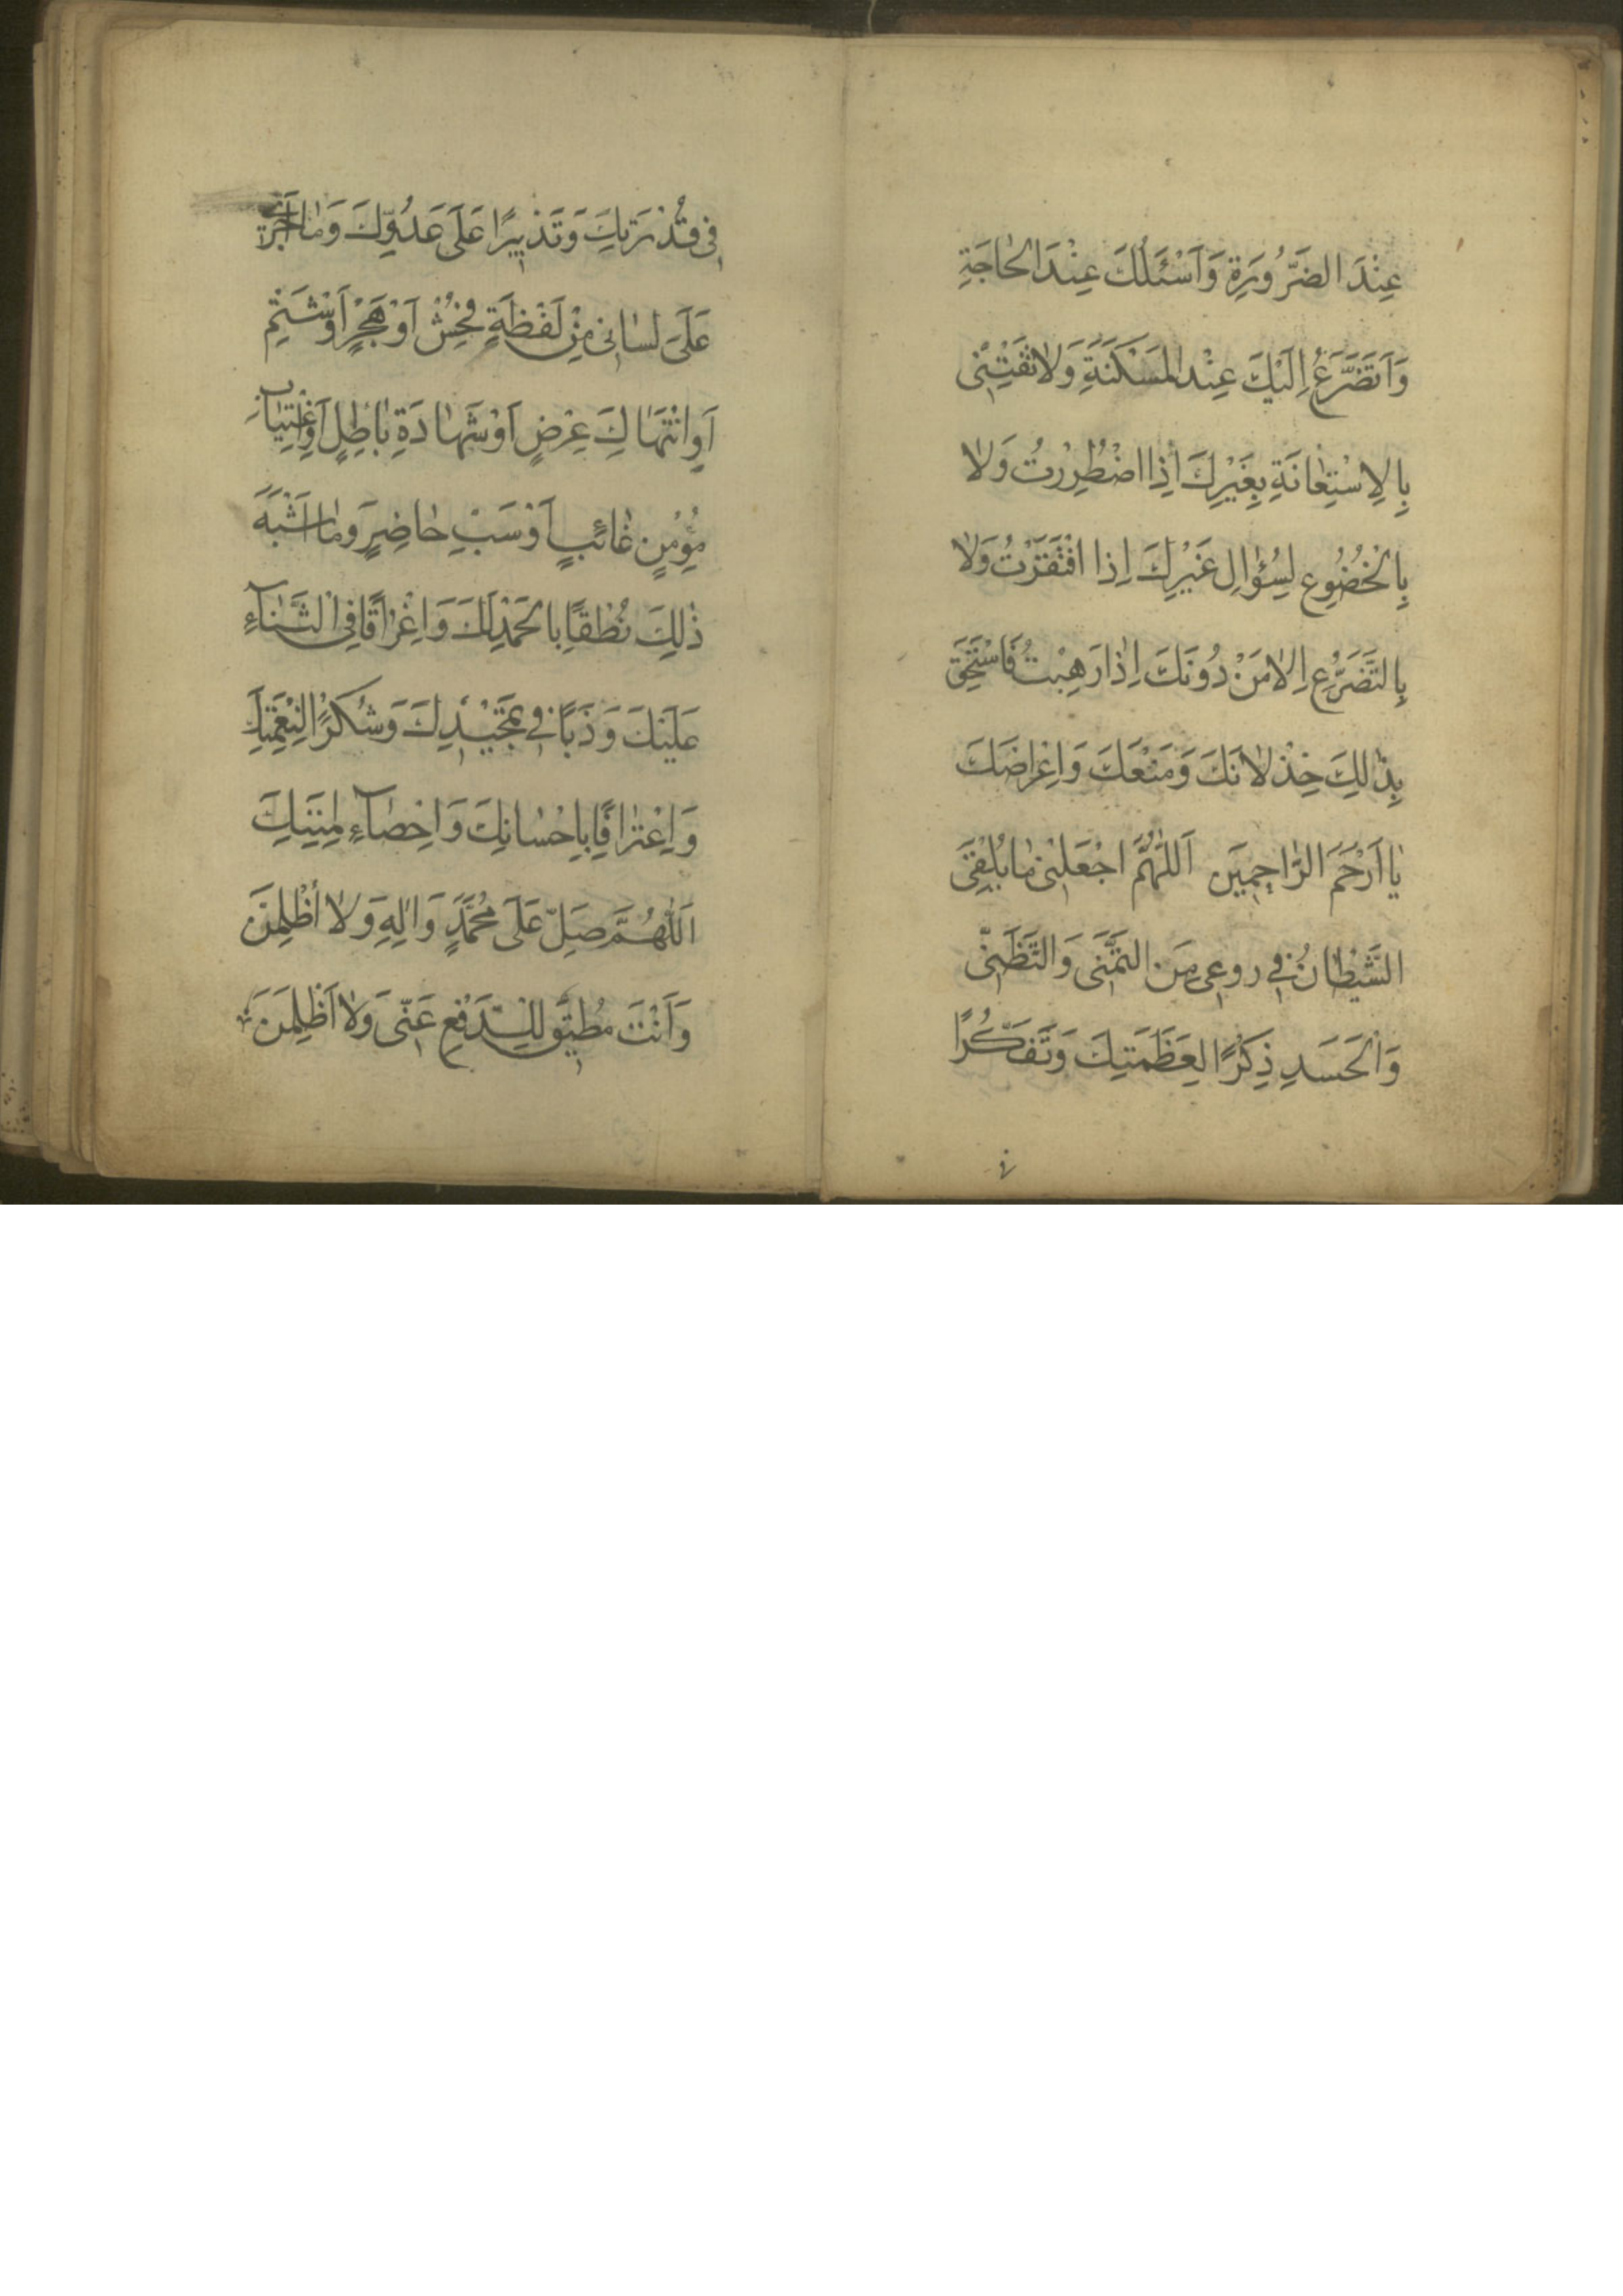 عِنْدَ الضَّرُورَةِ وَاَسْئَلُكَ عِنْدَ الْحاجَةِ
وَاَتَضَرَّعُ اِلَيْكَ عِنْدَ الْمَسْكَنَةِ وَلا تَفْتِنّى
بِالاِسْتِعانَةِ بِغَيْرِكَ اِذَا اضْطُرِرْتُ وَلا
بِالْخُضُوعِ لِسُؤالِ غَيْرِكَ اِذا افْتَقَرْتُ وَلا
بِالتَّضَرُّعِ اِلا مَنْ دُونَكَ اِذا رَهِبْتُ فَاَسْتَحِقَّ
بِذٰلِكَ خِذْلانَكَ وَمَنْعَكَ وَاِعْراضَكَ
يا اَرْحَمَ الرَّاحِمِيَن اَللّٰهُمَّ اجْعَلْنى ما يُلْقِى
الشَّيْطانُ فى روعى مِنَ التَّمَنّى وَالتَّظَنّى
وَالْحَسَدِ ذِكْرًا لِعَظَمَتِكَ وَتَفَكُّرًا
فى قُدْرَتِكَ وَتَدْبِيرًا عَلَى عَدُوِّكَ وَما اَجْرٰى
عَلَى لِسانى مِنْ لَفْظَةٍ فُحْشٍ اَوْ هُجْرٍ اَوْ شَتْمِ
اَوِ انْتِهاكِ عِرْضٍ اَوْ شَهادَةِ باطِلٍ اَوِ اغْتِيابِ
مُؤْمِنٍ غائِبٍ اَوْ سَبِّ حاضِرٍ وَما اَشْبَهَ
ذٰلِكَ نُطْقًا بِالْحَمْدِ لَكَ وَاِغْراقًا فِى الثَّناۤءِ
عَلَيْكَ وَذَبًا فى تَمْجِيْدِكَ وَشُكْرًا لِنِعْمَتِكَ
وَاِعْتِرافًا بِاِحْسانِكَ وَاِحْصاۤءً لِمِنَنِكَ
اَللّٰهُمَّ صَلِّ عَلَى مُحَمَّدٍ وَاٰلِهِ وَلا اُظْلَمَنَّ
وَاَنْتَ مُطِيقٌ لِلدَّفْعِ عَنّى وَلا اَظْلِمَنَّ